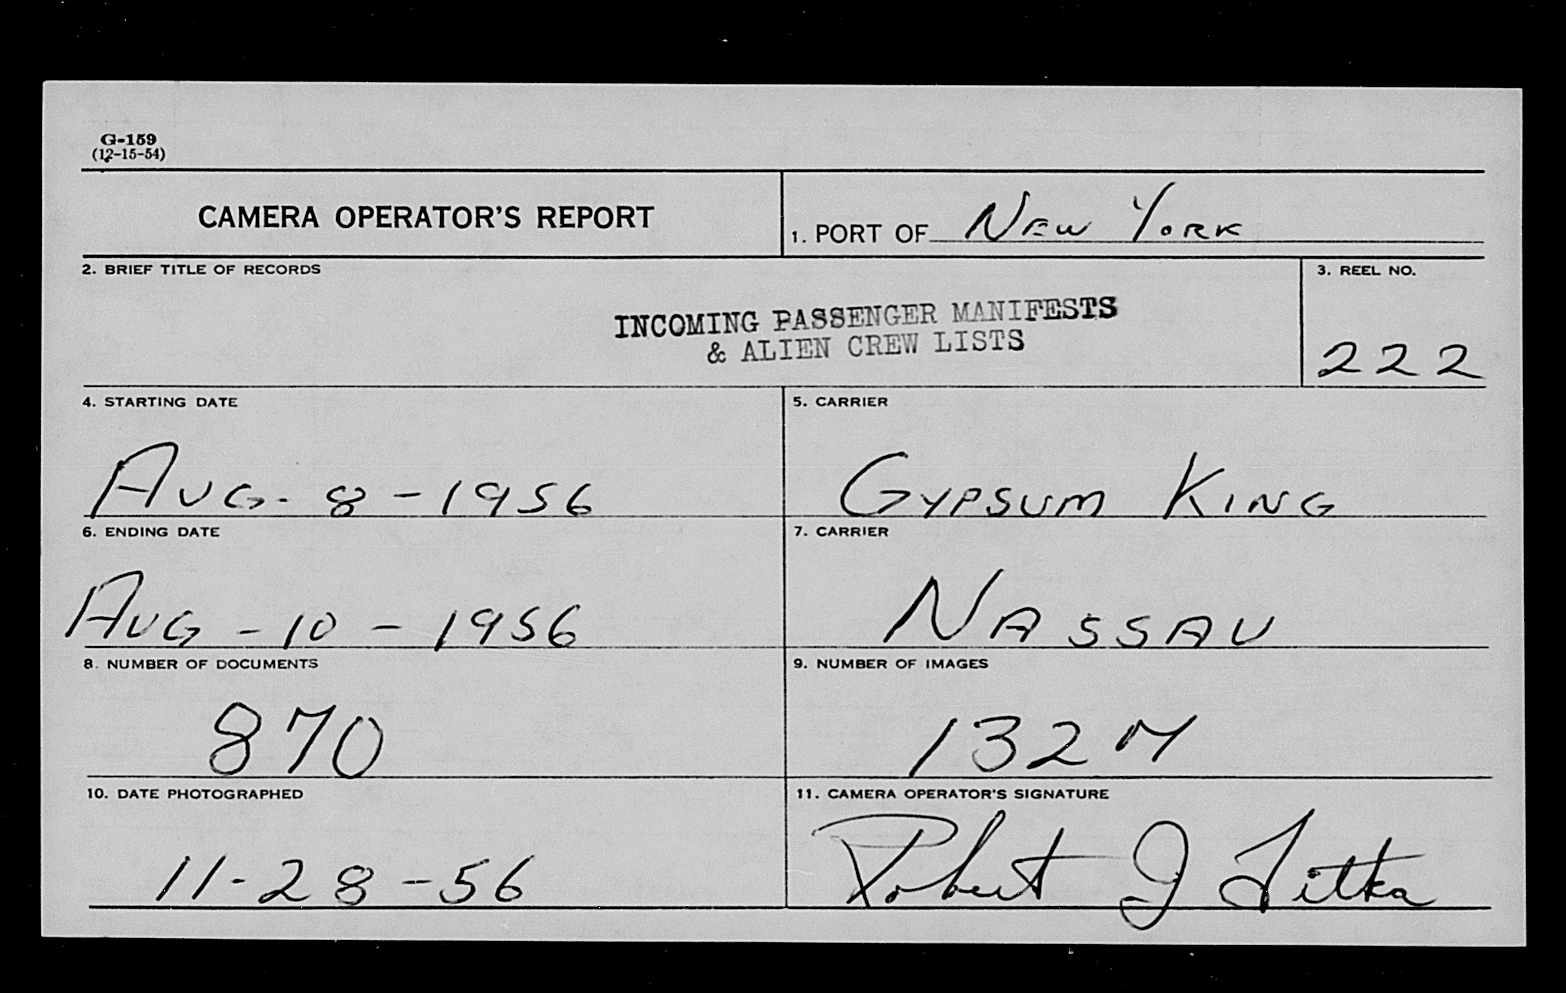 G-159
(12-15-54)
CAMERA OPERATOR'S REPORT
1. PORT OF New York
2. BRIEF TITLE OF RECORDS
INCOMING PASSENGER MANIFESTS
& ALIEN CREW LISTS
3. REEL NO.
222
4. STARTING DATE
AUG. 8 - 1956
5. CARRIER
GYPSUM KING
6. ENDING DATE
AUG - 10 - 1956
7. CARRIER
NASSAU
8. NUMBER OF DOCUMENTS
870
9. NUMBER OF IMAGES
132M
10. DATE PHOTOGRAPHED
11-28-56
11. CAMERA OPERATOR'S SIGNATURE
Robert J